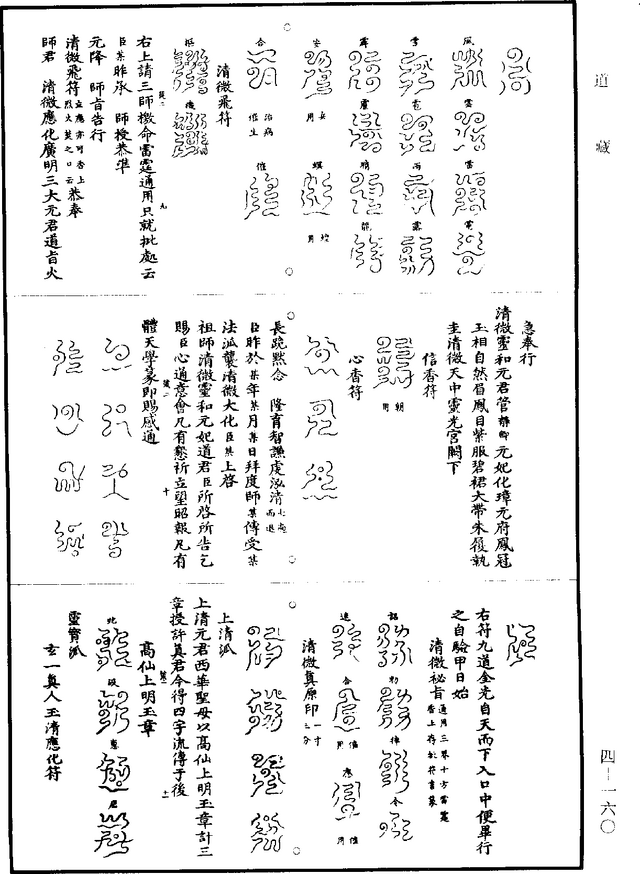 道藏
風 雲 雷 電
雪 雹 雨 霧
霹
安 用
合 治病 催生 催
清微飛符
右上請三師檄命雷霆通用只就批處云
臣某昨承 師授恭準
元降 師旨告行
清微飛符 恭奉
師君 清微應化廣明三大元君道旨火
急奉行
清微靈和元君管 元妃化璋元府鳳冠
玉相自然眉鳳目紫服碧裙大帶朱履執
圭清微天中靈光宮闕下
信香符
朝用
心香符
長跪默念 隆育智謙虔泓清
臣昨於某年某月某日拜度師某傳受某
法派襲清微大化臣某上啓
祖師清微靈和元妃道君臣所啓所告乞
賜臣心通意會凡有懇祈立望昭報凡有
體天學篆即賜感通
右符九道金光自天而下入口中便畢行
之自驗甲日始
清微秘旨 通用三界十方雷霆
詔 勅
追 合 應
清微真原印 一寸三分
上清派
上清元君西華聖母以高仙上明玉章計三
章授許真君今得四字流傳于後
高仙上明玉章
靈寶派
玄一真人玉清應化符
四—一六〇